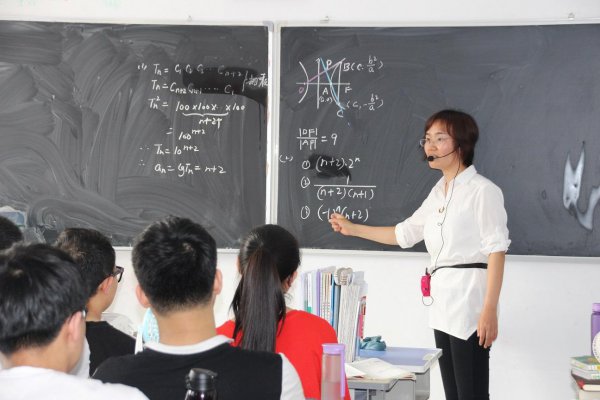 (1) Tₙ = C₁ C₂ C₃ ... Cₙ₊₂
Tₙ = Cₙ₊₂ Cₙ₊₁ ... C₁
Tₙ² = 100×100×...×100
n+2个
= 100ⁿ⁺²
∴ Tₙ = 10ⁿ⁺²
∴ aₙ = lgTₙ = n+2
P B(c, b²/a)
A F
C (c, -b²/a)
|DF|/|AF| = 9
① (n+2)·2ⁿ
② 1/((n+2)(n+1))
③ (-1)ⁿ(n+2)